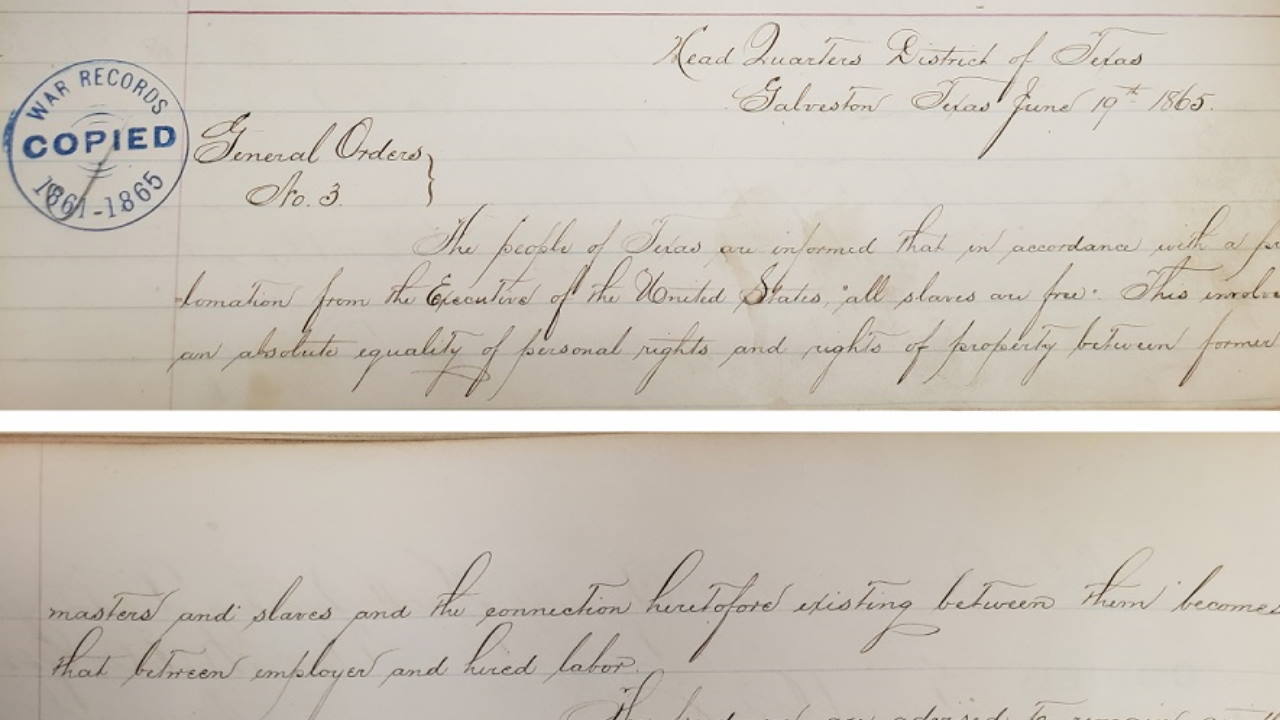 Head Quarters District of Texas
Galveston Texas June 19th 1865.
WAR RECORDS
COPIED
1861-1865
General Orders
No. 3.
The people of Texas are informed that in accordance with a
lamation from the Executive of the United States, "all slaves are free". This involve
an absolute equality of personal rights and rights of property between former
masters and slaves and the connection heretofore existing between them becomes
that between employer and hired labor.
are advised to remain